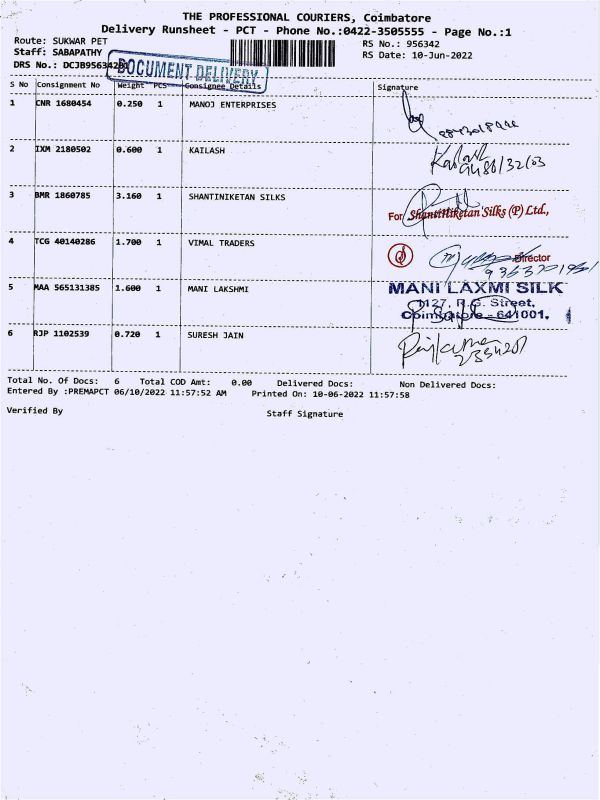 THE PROFESSIONAL COURIERS, Coimbatore
Delivery Runsheet - PCT - Phone No.:0422-3505555 - Page No.:1
Route: SUKWAR PET
RS No.: 956342
Staff: SABAPATHY
RS Date: 10-Jun-2022
DRS No.: DCJB956342
DOCUMENT DELIVERY
S No Consignment No Weight PCS Consignee Details Signature
1 CNR 1680454 0.250 1 MANOJ ENTERPRISES
2 IXM 2180502 0.600 1 KAILASH
Kailash
3 BMR 1860785 3.160 1 SHANTINIKETAN SILKS
For Shantiniketan Silks (P) Ltd.,
4 TCG 40140286 1.700 1 VIMAL TRADERS
Director
5 MAA 565131385 1.600 1 MANI LAKSHMI
MANI LAXMI SILK
1127, R.G. Street,
Coimbatore - 641001.
6 RJP 1102539 0.720 1 SURESH JAIN
Total No. Of Docs: 6 Total COD Amt: 0.00 Delivered Docs: Non Delivered Docs:
Entered By :PREMAPCT 06/10/2022 11:57:52 AM Printed On: 10-06-2022 11:57:58
Verified By
Staff Signature